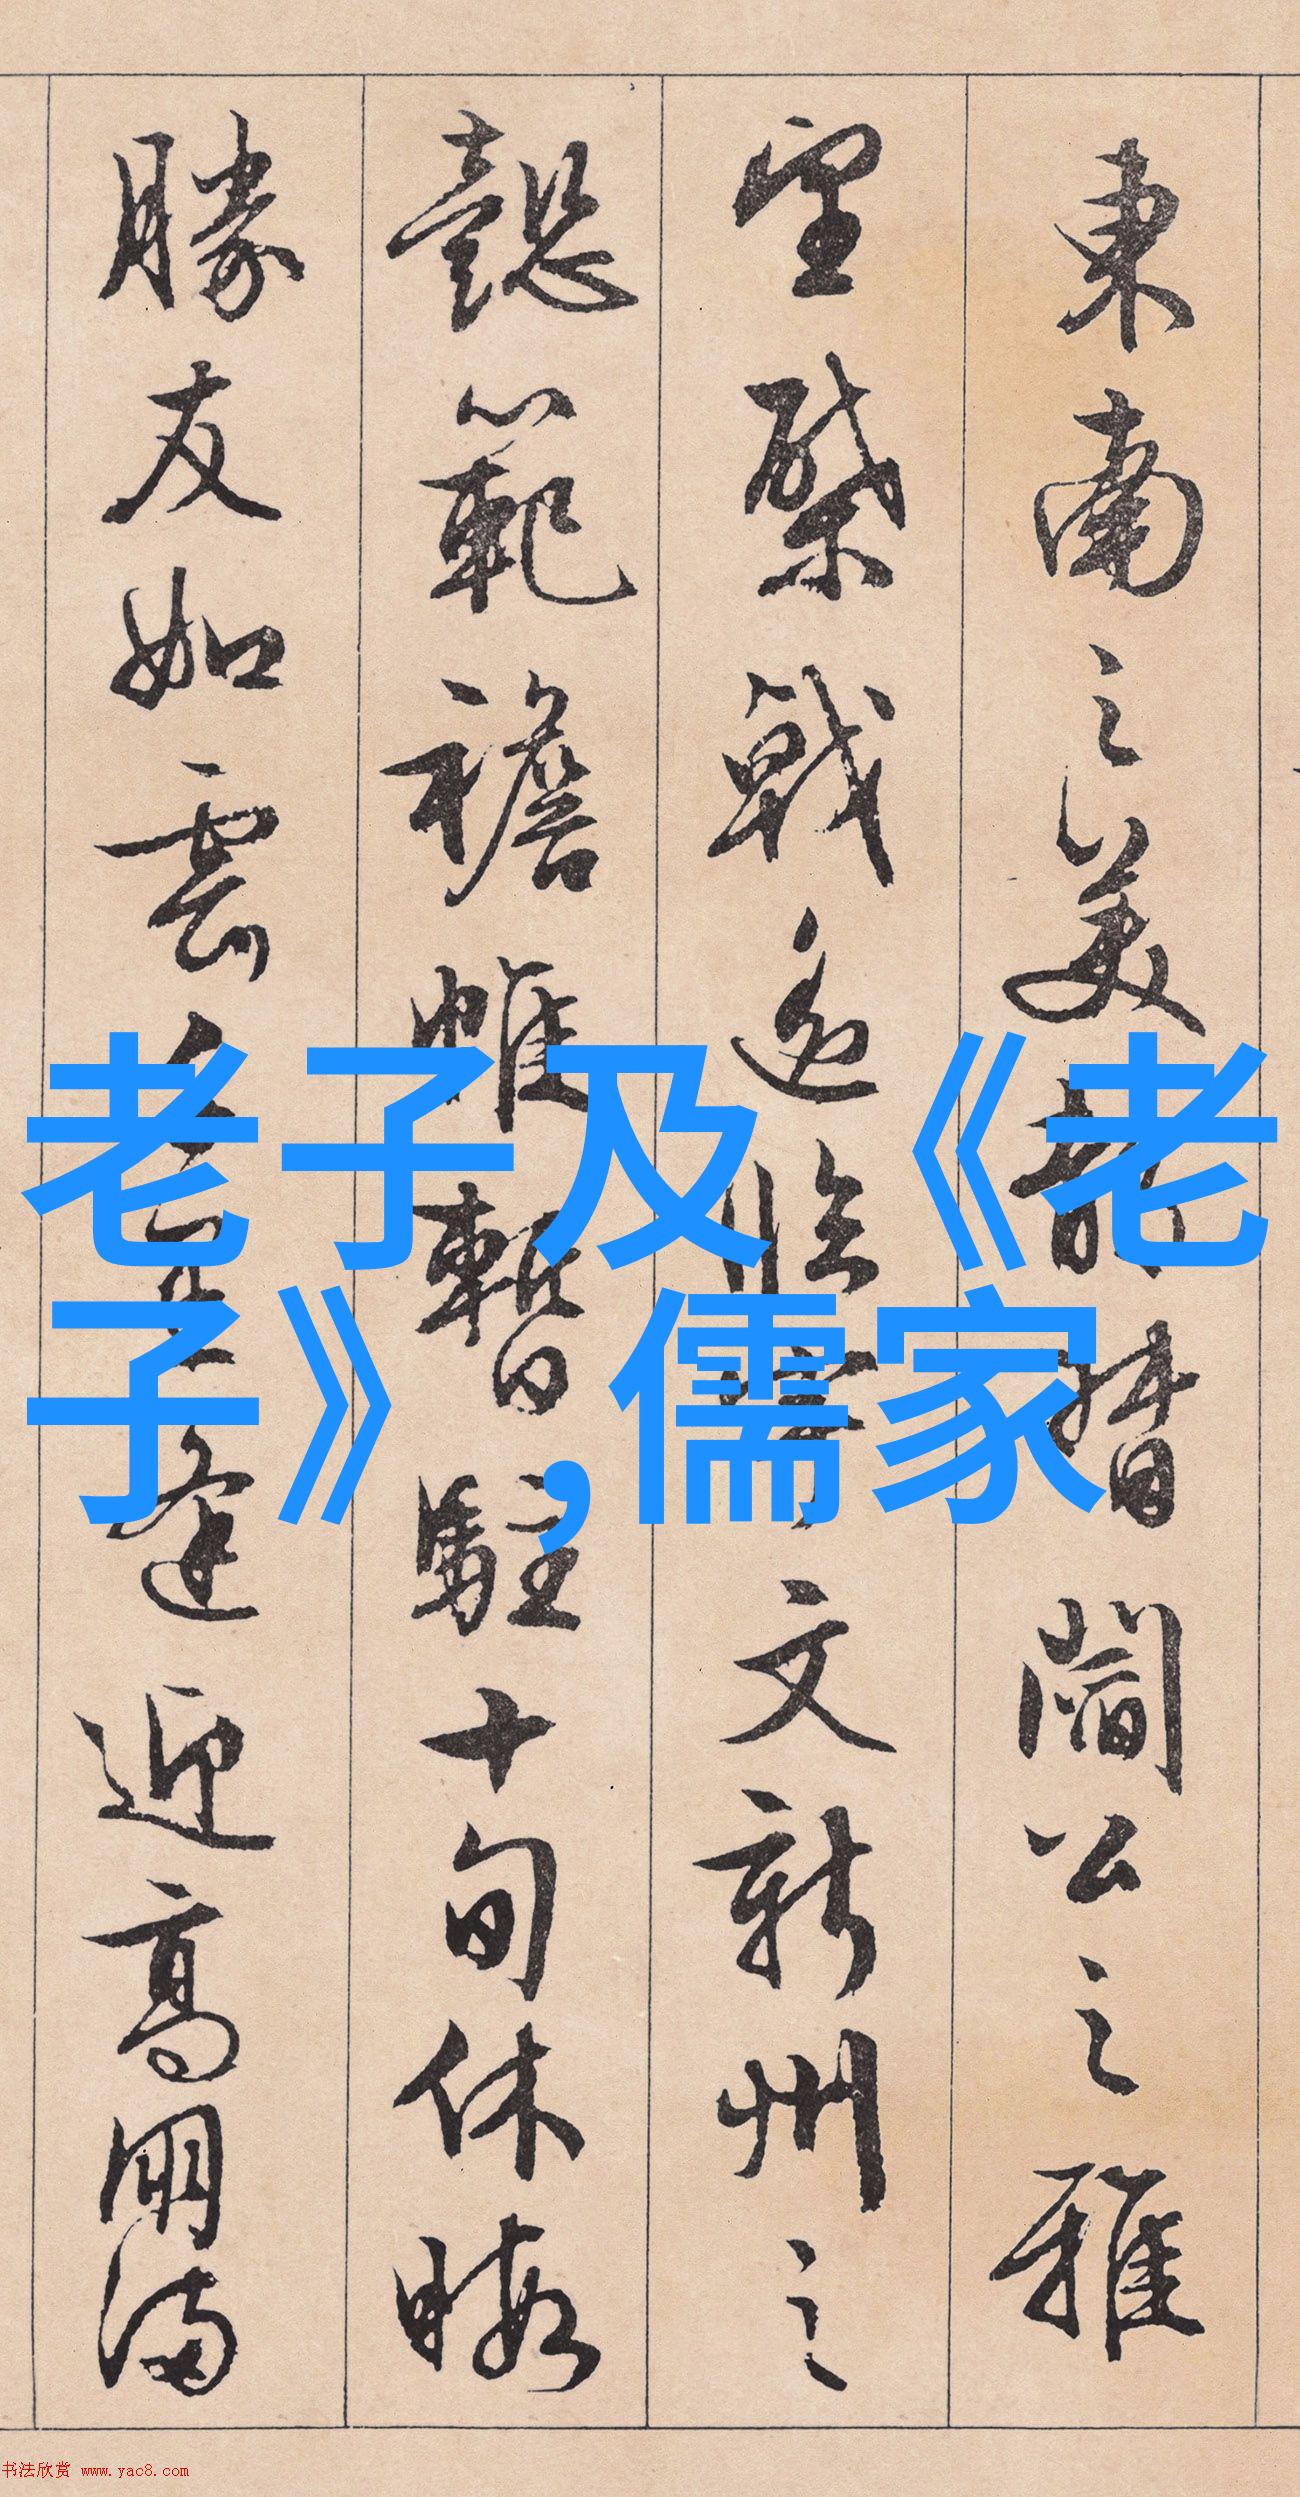 東南之美都督閻公之雅
望棨戟遙臨宇文新州之
懿範襜帷暫駐十旬休暇
勝友如雲千里逢迎高朋滿
老子及《老
子》,儒家
书法欣赏 www.yac8.com